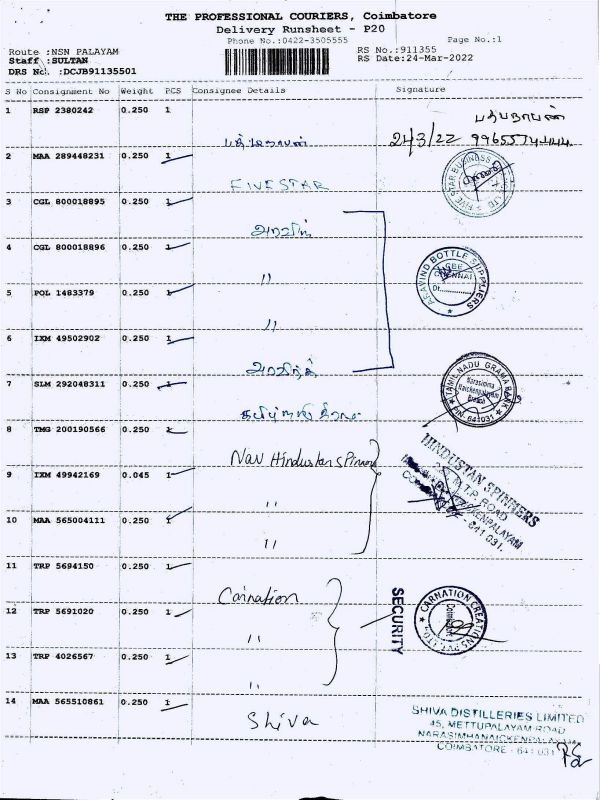 THE PROFESSIONAL COURIERS, Coimbatore
Delivery Runsheet - P20
Phone No.:0422-3505555
Page No.:1
Route :NSN PALAYAM
RS No.:911355
Staff :SULTAN
RS Date:24-Mar-2022
DRS No. :DCJB91135501
S No Consignment No Weight PCS Consignee Details Signature
1 RSP 2380242 0.250 1
24/3/22
2 MAA 289448231 0.250 1
FIVE STAR
3 CGL 800018895 0.250 1
4 CGL 800018896 0.250 1
"
ARAVIND BOTTLE SUPPLIERS
CHENNAI
5 POL 1483379 0.250 1
"
6 IXM 49502902 0.250 1
7 SLM 292048311 0.250 1
TAMIL NADU GRAMA BANK
Narasimma
Naickenpalayam
Branch
641031
8 TMG 200190566 0.250 1
Nav Hindustan spinners
HINDUSTAN SPINNERS
M.T.P. ROAD
9 IXM 49942169 0.045 1
"
10 MAA 565004111 0.250 1
"
11 TRP 5694150 0.250 1
Carnation
SECURITY
CARNATION CREATIONS PVT. LTD.
Coimbatore
12 TRP 5691020 0.250 1
"
13 TRP 4026567 0.250 1
"
14 MAA 565510861 0.250 1
Shiva
SHIVA DISTILLERIES LIMITED
45, METTUPALAYAM ROAD
NARASIMHANAICKENPALAYAM
COIMBATORE - 641 031